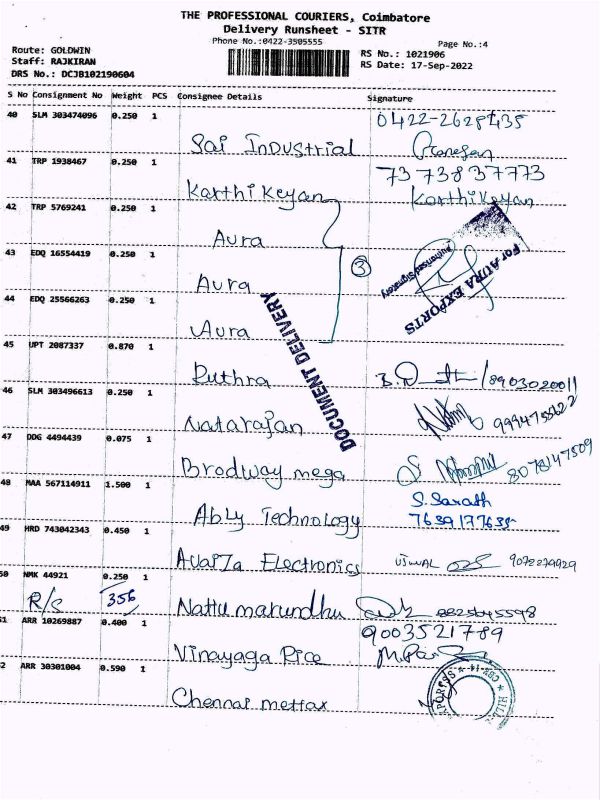 THE PROFESSIONAL COURIERS, Coimbatore
Delivery Runsheet - SITR
Phone No.:0422-3505555
Page No.:4
Route: GOLDWIN
Staff: RAJKIRAN
DRS No.: DCJB102190604
RS No.: 1021906
RS Date: 17-Sep-2022
S No Consignment No Weight PCS Consignee Details Signature
40 SLM 303474096 0.250 1
Sai Industrial
0422-2628435
Ganesan
41 TRP 1938467 0.250 1
Karthikeyan
73738 37773
Karthikeyan
42 TRP 5769241 0.250 1
Aura
43 EDQ 16554419 0.250 1
Aura
3
44 EDQ 25566263 0.250 1
Aura
For AURA EXPORTS
Authorised Signatory
DOCUMENT DELIVERY
45 UPT 2087337 0.870 1
Ruthra
8903020011
46 SLM 303496613 0.250 1
Natarajan
47 DDG 4494439 0.075 1
Brodway mega
8078147509
48 MAA 567114911 1.500 1
Ably Technology
S. Sarath
49 HRD 743042343 0.450 1
Electronics
9072279929
50 NMK 44921 0.250 1
R/S 356
Nattu marundhu
8825645598
51 ARR 10269887 0.400 1
Vinayaga Rice
9003521789
52 ARR 30301004 0.590 1
Chennai mettax